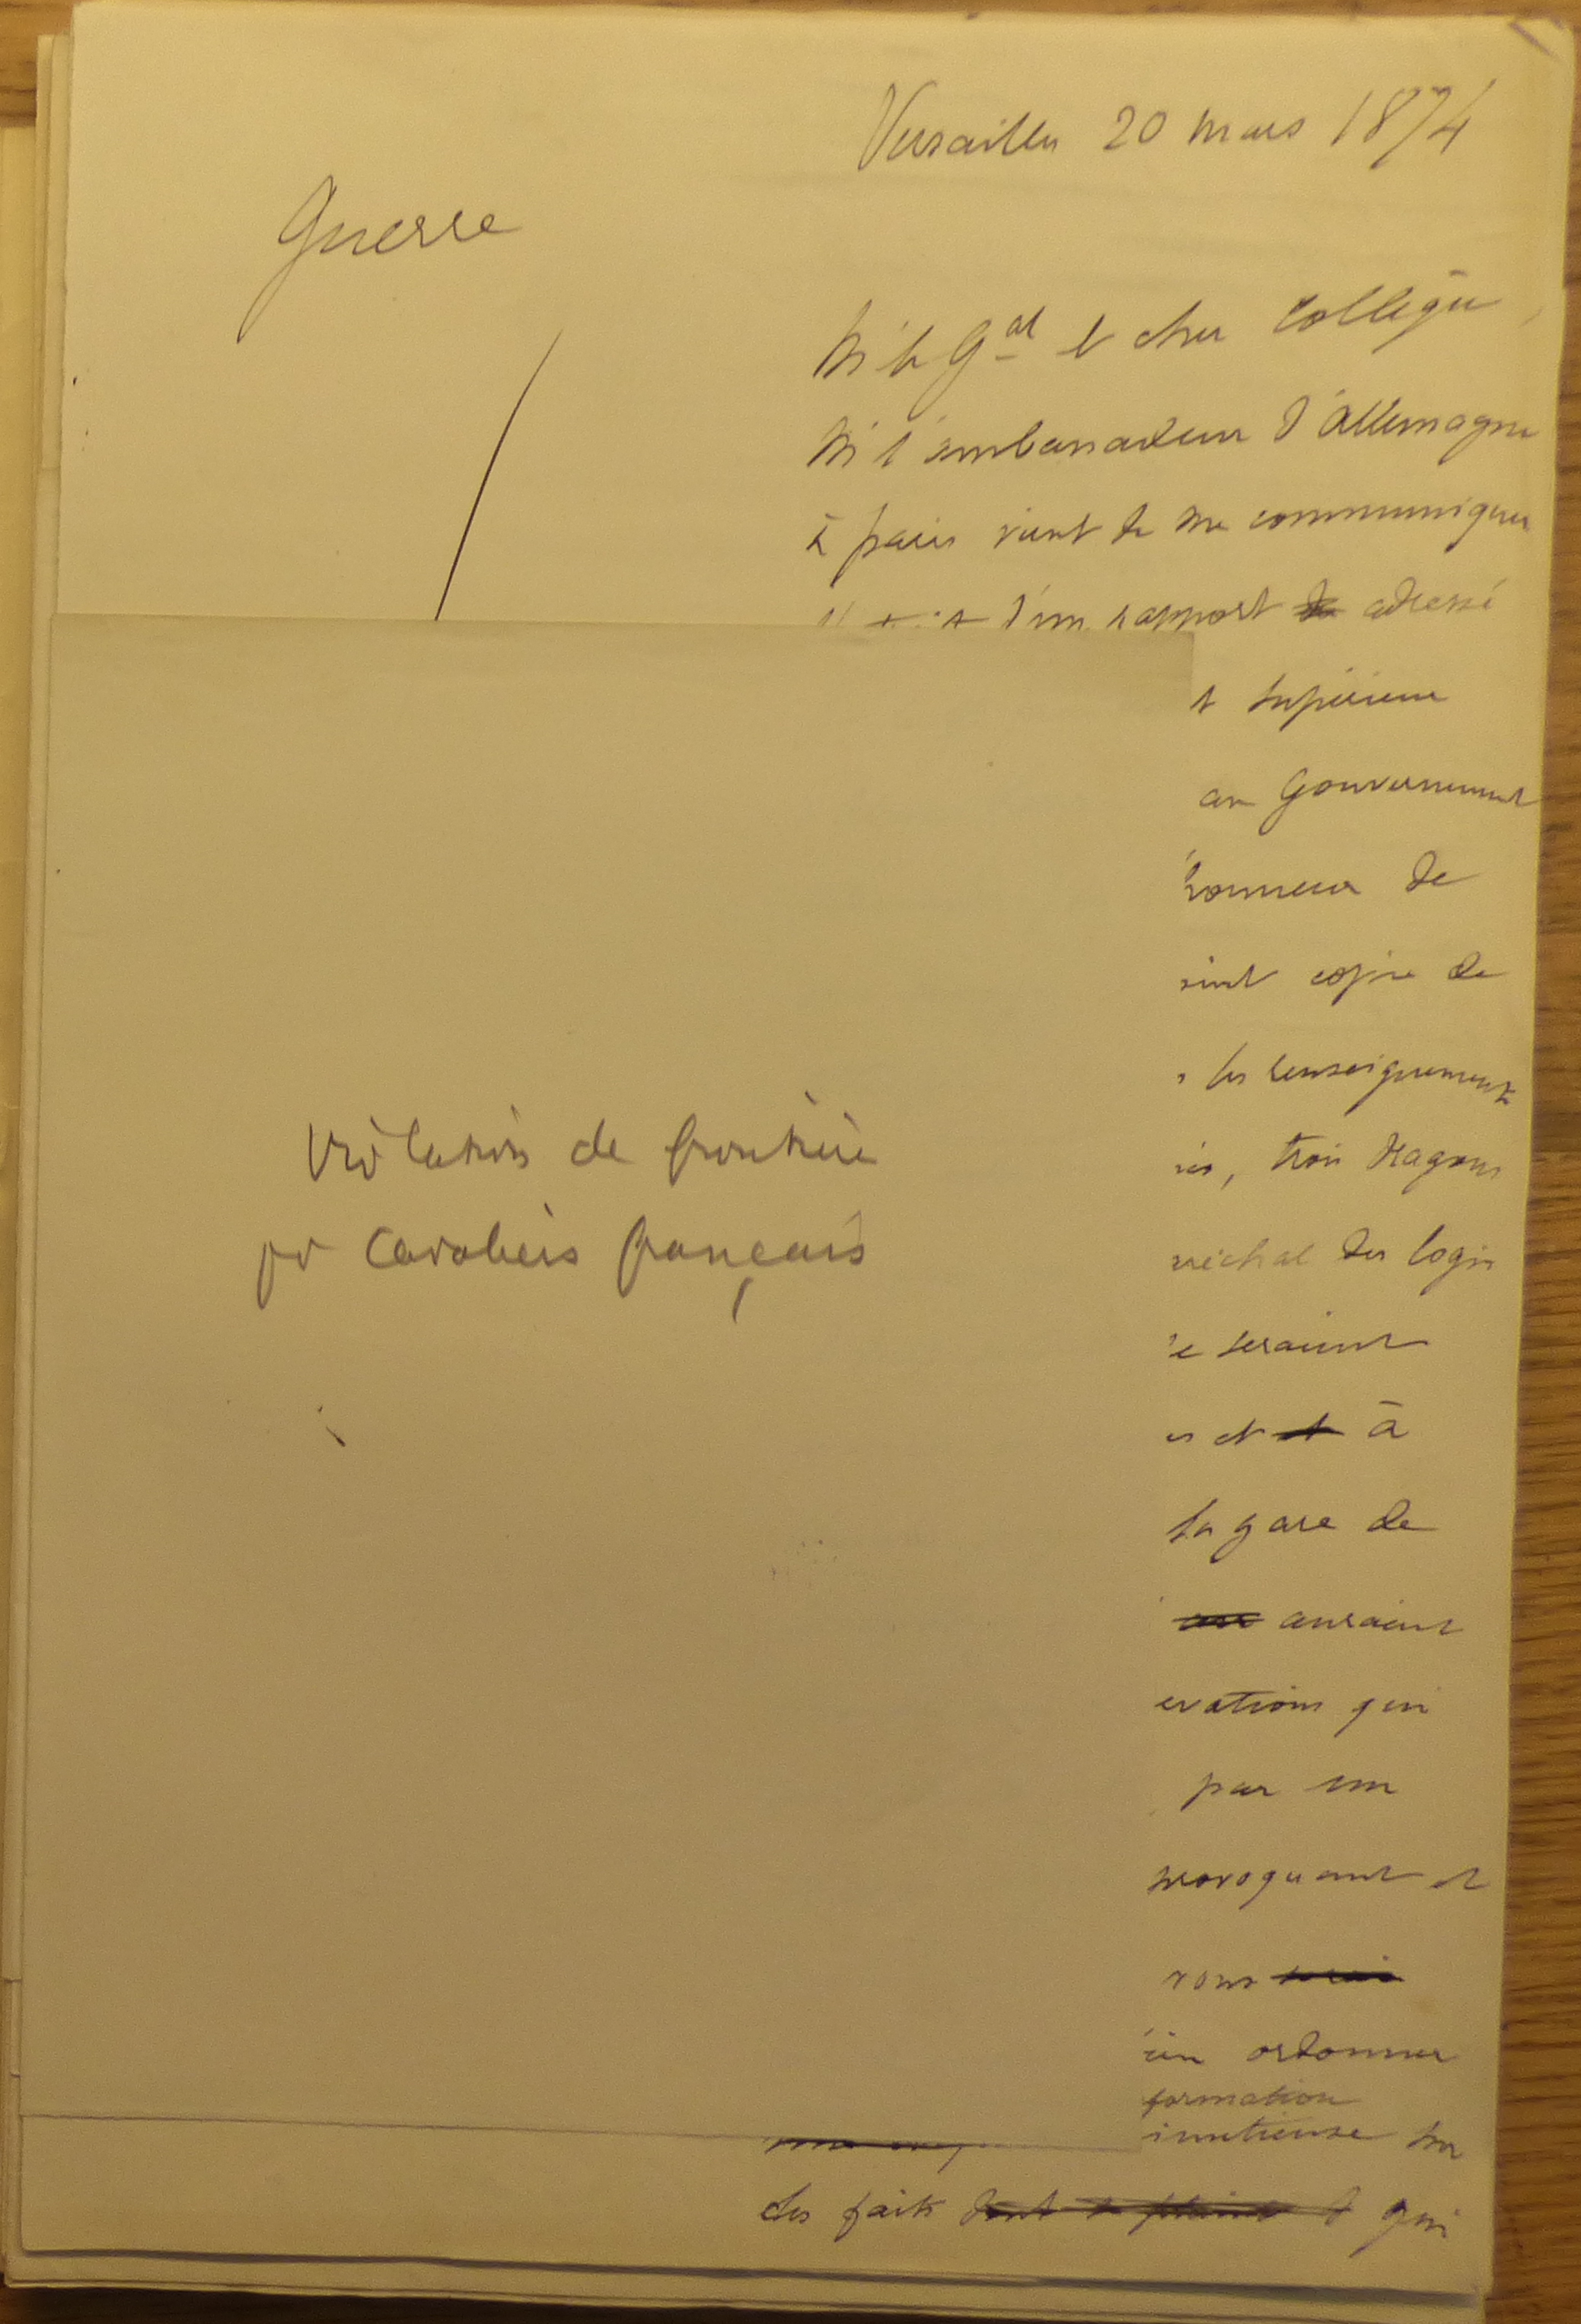 Versailles 20 mars 1874
Guerre
M le Gal et cher collègue,
M l'ambassadeur d'Allemagne
à Paris vient de me communiquer
d'un rapport de adressé
t supérieur
au Gouvernement
honneur de
joint copie de
les renseignements
trois dragons
réchal des logis
seraient
et et à
la gare de
auraient
ervations qui
par un
provoquant et
vous
ordonner
formation
inutieuse sur
des faits dont se plaint et qui
Violation de frontière
pr cavaliers français